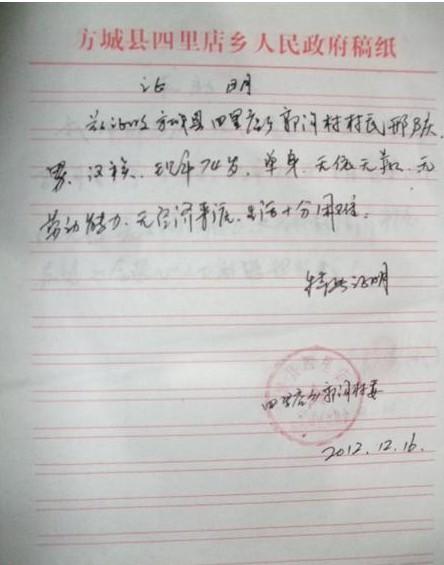 方城县四里店乡人民政府稿纸
证 明
兹证明方城县四里店乡郭沟村村民邢
男、汉族、现年74岁,单身、无依无靠、无
劳动能力、无经济来源、生活十分困难。
特此证明
四里店乡郭沟村委
2012.12.16.